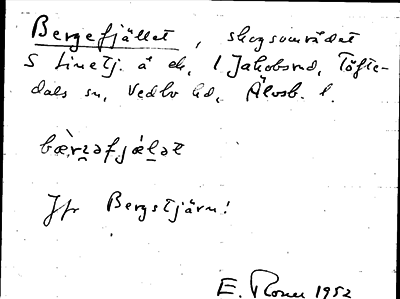 Bergefjället, skogsområdet
S Linetj. å ek, 1 Jakobsrud, Töftedals sn, Vedbo hd, Älvsb. l.
bæ̀rɜəfjälət
Jfr Bergstjärn!
E. Roner 1952